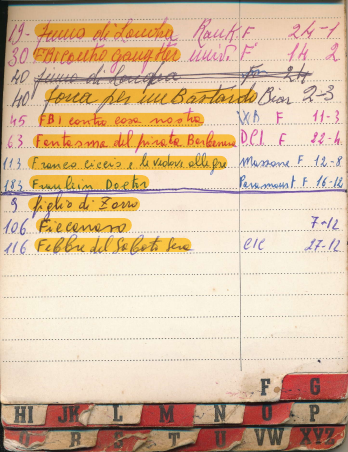 19- Fumo di Londra Rank F 24-1
30 FBI contro gangster univ. F 14 2
40 fumo di Londra 24
40 forca per un Bastardo Bior 2-3
45 FBI contro cosa nostra F 11-3
63 Fantasma del pirata Barbanera DCI F 22-4
113 Franco ciccio e le vedove allegre Massone F 12-8
183 Fraulein Doctor Paramount F 16-12
9 figlio di Zorro
106 Ficcanaso 7-12
116 Febbre del Sabato Sera CIC 27-12
F G
HI JK L M N O P
Q R S T U VW XYZ